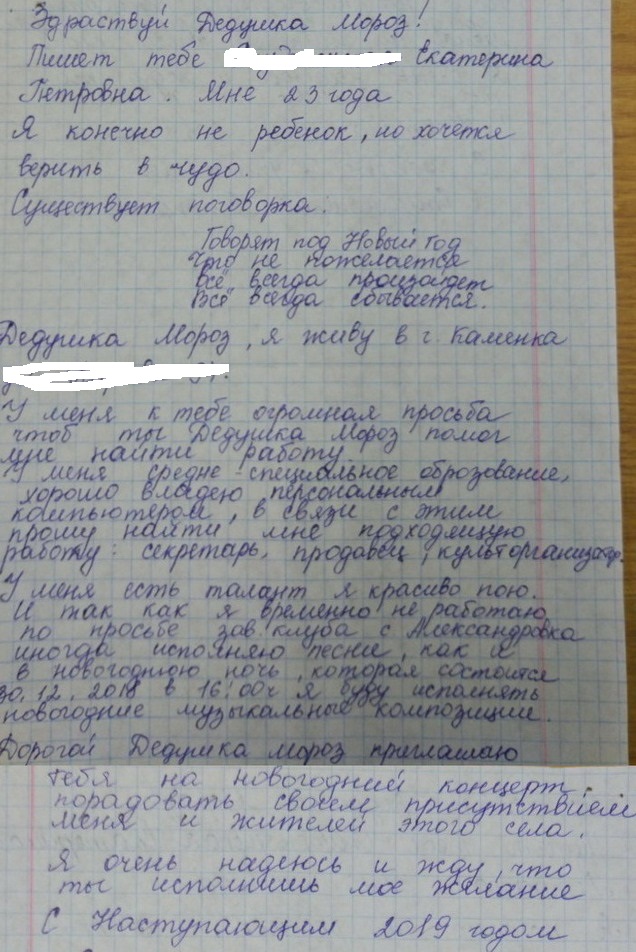 Здраствуй Дедушка Мороз!
Пишет тебе Екатерина
Петровна. Мне 23 года
Я конечно не ребенок, но хочется
верить в чудо.
Существует поговорка:
Говорят под Новый Год
Что не пожелается
Всё всегда произайдет
Всё всегда сбывается.
Дедушка Мороз, я живу в г. Каменка
У меня к тебе огромная просьба
чтоб ты Дедушка Мороз помог
мне найти работу.
У меня средне-специальное оброзование,
хорошо владею персональным
компьютером, в связи с этим
прошу найти мне подходящую
работу: секретарь, продавец, культорганизатор.
У меня есть талант я красиво пою.
И так как я временно не работаю,
по просьбе зав. клуба с Александровка
иногда исполняю песни, как и
в новогоднюю ночь, которая состоится
30.12.2018 в 16:00ч я буду исполнять
новогодние музыкальные композиции.
Дорогой Дедушка мороз приглашаю
тебя на новогодний концерт
порадовать своем присутствием
меня и жителей этого села.
Я очень надеюсь и жду, что
ты исполнишь мое желание
С Наступающим 2019 годом